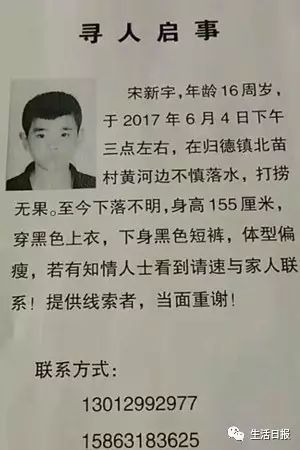 寻人启事
宋新宇,年龄16周岁,
于2017年6月4日下午
三点左右,在归德镇北苗
村黄河边不慎落水,打捞
无果。至今下落不明,身高155厘米,
穿黑色上衣,下身黑色短裤,体型偏
瘦,若有知情人士看到请速与家人联
系!提供线索者,当面重谢!
联系方式:
13012992977
15863183625
生活日报